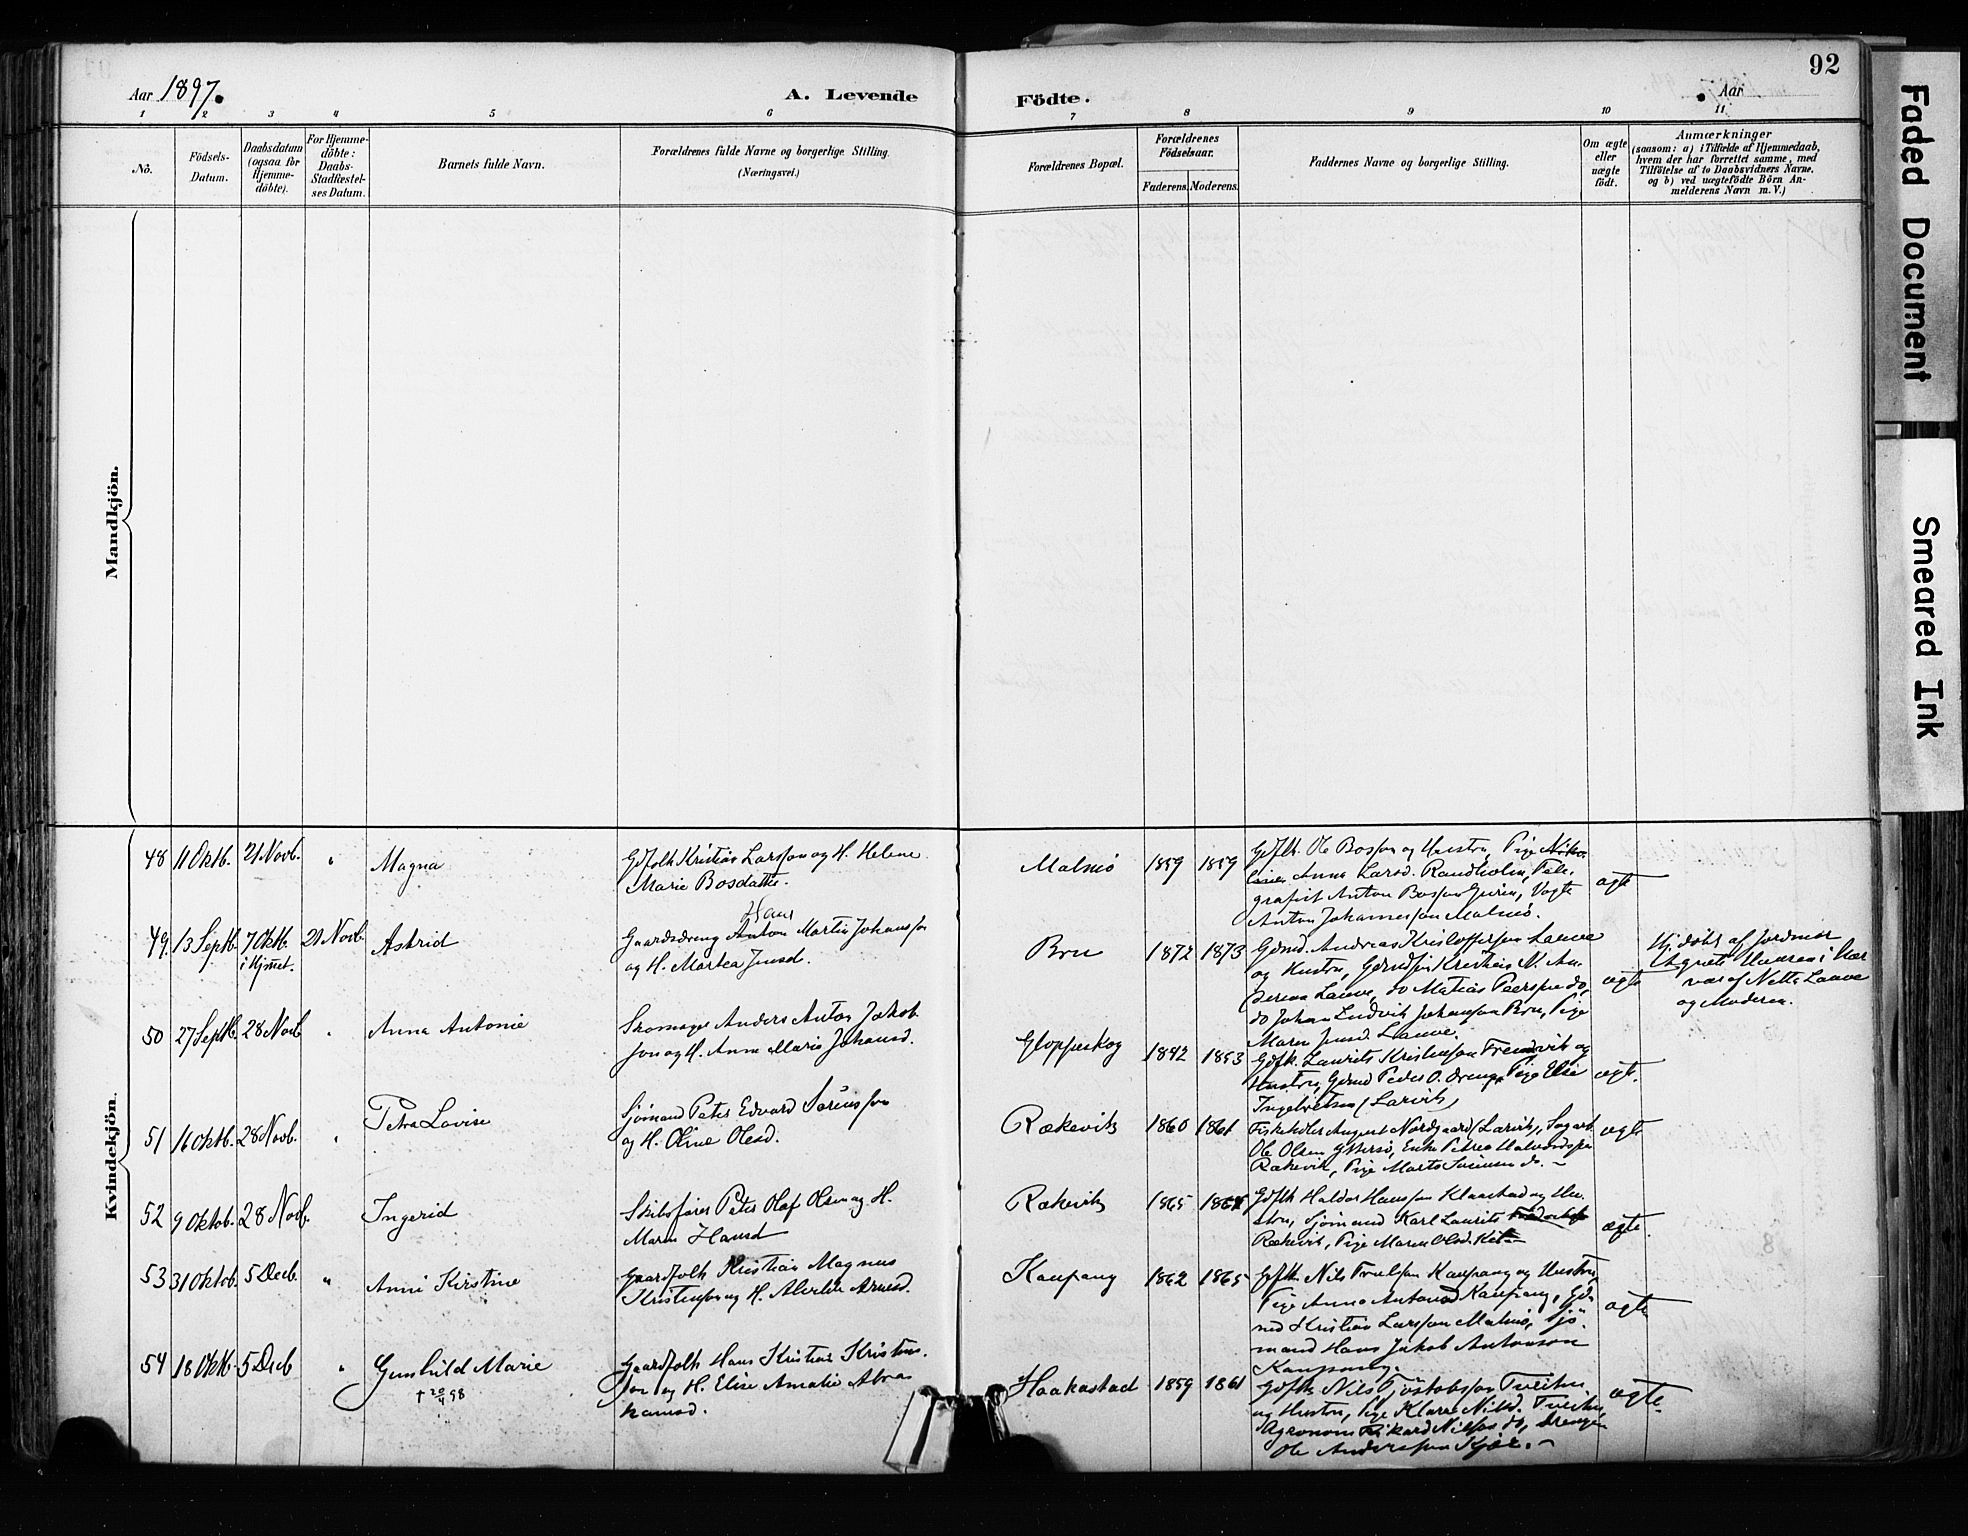 92
Aar 1897.
A. Levende
Födte.
Aar
1 2 3 4 5 6 7 8 9 10 11
No.
Födsels-
Datum.
Daabsdatum
(ogsaa for
Hjemme-
döbte).
For Hjemme-
döbte:
Daabs-
Stadfæstel-
ses Datum.
Barnets fulde Navn.
Forældrenes fulde Navne og borgerlige Stilling.
(Næringsvei.)
Forældrenes Bopæl.
Forældrenes
Födselsaar.
Faderens.
Moderens.
Faddernes Navne og borgerlige Stilling.
Om ægte
eller
uægte
født.
Anmærkninger
(saasom: a) i Tilfælde af Hjemmedaab,
hvem der har forrettet samme, med
Tilföielse af to Daabsvidners Navne,
og b) ved uægtefödte Börn An-
melderens Navn m. V.)
Mandkjön.
Kvindekjön.
48 11 Oktb. 21 Novb. " Magna
Gdfolk Kristian Larsson og H. Helene
Marie Bosdatter.
Malmö 1859 1859
Gdflk. Ole Bosson og Hustru, Pige
Anna Larsd. Randholm, Tele-
grafist Anton Bosson
Anton Johannesson Malmö.
ægte
49. 13 Septb. 7 Oktb. 21 Novb. Astrid
i Hjmet.
Hans
Gaardsdreng Anton Martin Johansson
og H. Martea Jensd.
Bru 1872 1873
Gdmd. Andreas Kristoffersen Lauve
og Hustru,
Lauve, do Matias Peersen do,
do Johan Ludvik Johansson Bru, Pige
Maren Jensd. Lauve.
ægte
Hj. döbt af Jordmor
af Netta Lauve
og Moderen.
50 27 Septb. 28 Novb " Anna Antonie
Skomager Anders Anton Jakob-
son og H. Anne Marie Johansd.
Gloppeskog 1842 1853
Gdfk. Laurits Kristensen og
Hustru, Gdmd Peder O. Pige Else
(Larvik)
ægte.
51 16 Oktb. 28 Novb. " Petra Lovise
Sjömand Peter Edvard
og H. Oline Olesd.
Rækevik 1860 1861
August Nordgaard (Larvik),
Ole Olsen Enke Petrea
Rækevik, Pige Marte do. –
ægte
52 9 Oktob. 28 Novb. Ingerid
Skibsfører Peter Olaf Olsen og H.
Maren Hansd
Rækevik 1865
Gdflk Haldor Hansson Klaastad og Hu-
stru, Sjömand Karl Laurits
Rækevik, Pige Maren Olsd.
ægte.
53 31 Oktob. 5 Decb. " Anni Kirstine
Gaardfolk Kristian Magnus
Kristenson og H. Arnesd.
Kaupang 1862 1865
Gdflk Nils Trulsson Kaupang og Hustru,
Pige Anna Antonsd Kaupang, Gd-
md Kristian Larsson Malmö, Sjö-
mand Hans Jakob Antonson
Kaupang.
ægte
54 18 Oktb. 5 Decb " Gunhild Marie
† 20/4 98
Gaardfolk Hans Kristian Kristen-
son og H. Elise Amalie Abra-
hamsd.
Haakastad 1859 1861
Gdflk Nils
og Hustru, Pige Klara Nilsd.
Agronom Rikard Nilsson do,
Ole Andersson
ægte.
Faded Document
Smeared Ink